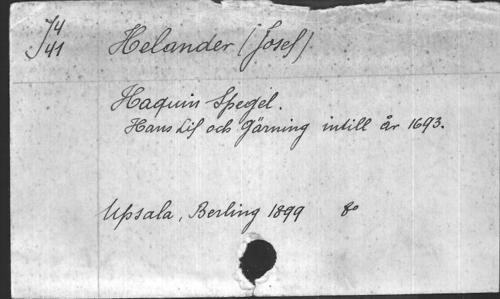 J4
41
Helander (Josef)
Haquin Spegel.
Hans Lif och Gärning intill år 1693.
Upsala, Berling 1899 8o